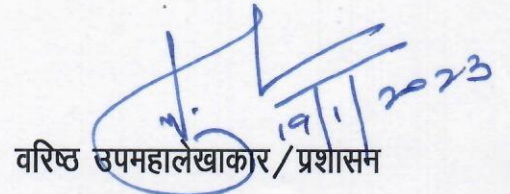 19/1/2023
वरिष्ठ उपमहालेखाकार/प्रशासन